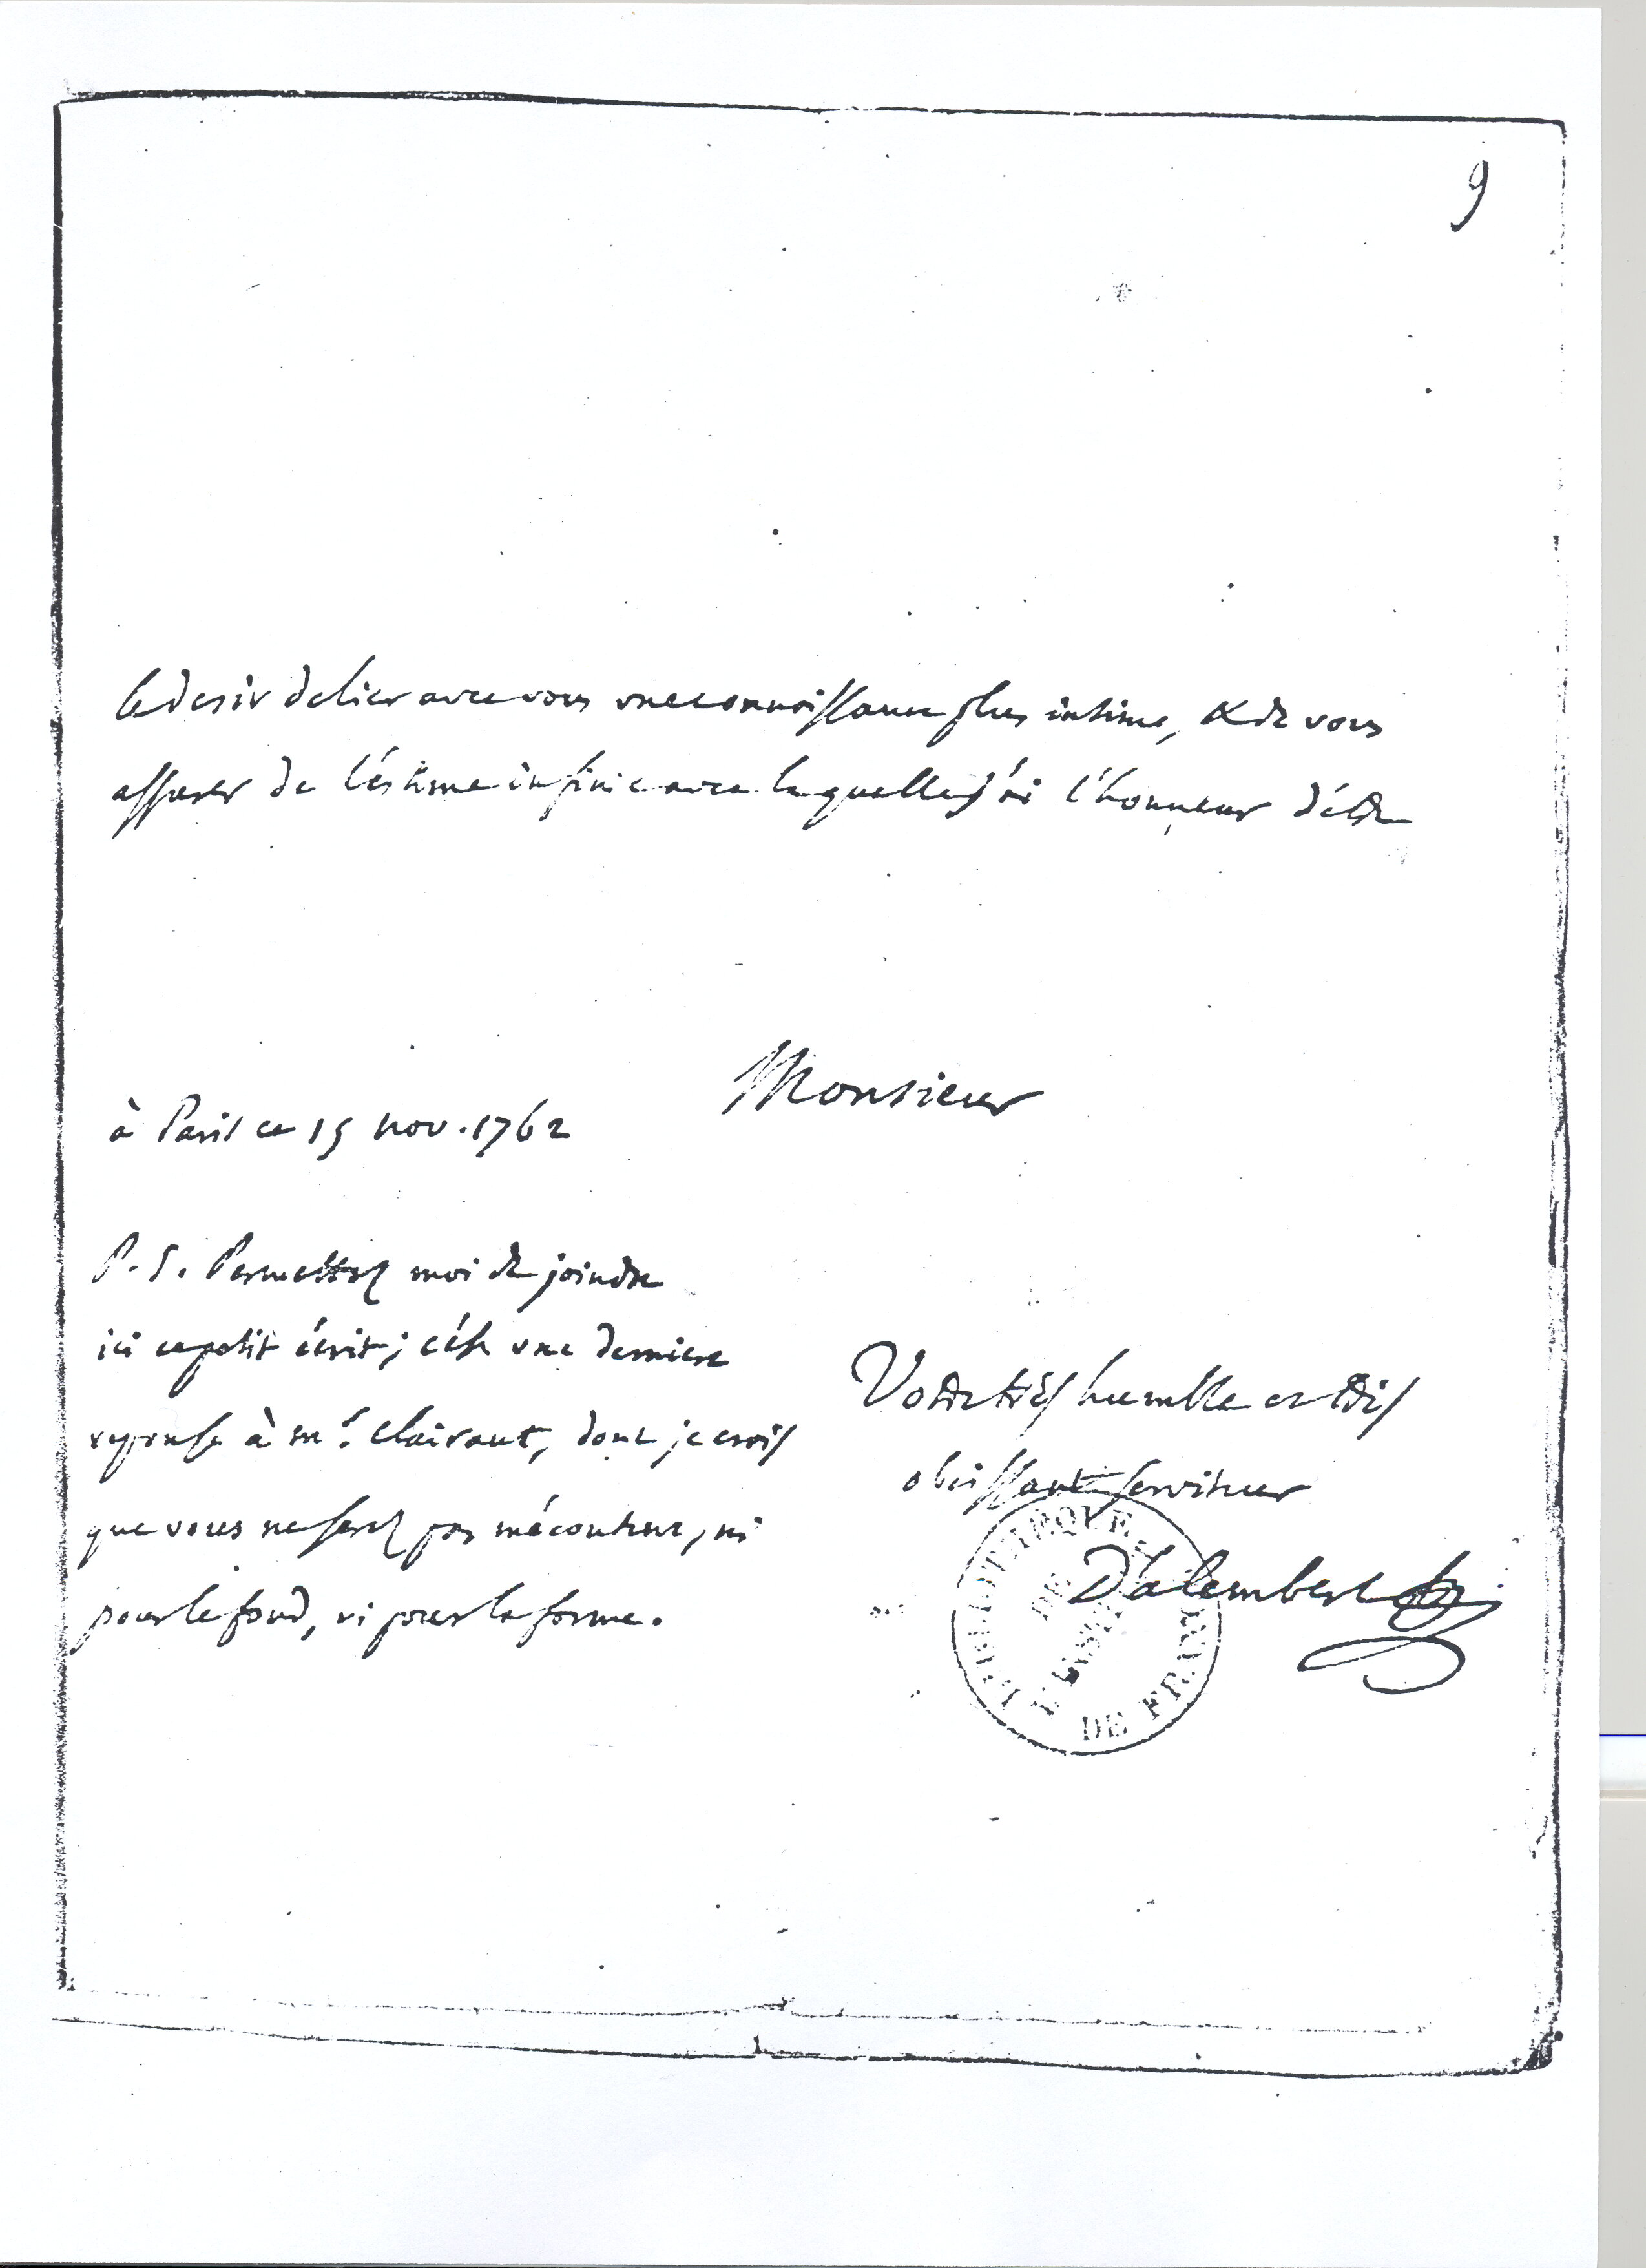 9
le desir de lier avec vous une connoissance plus intime, & de vous
assurer de l'éstime infinie avec la quelle j'ai l'honneur d'étre
Monsieur
à Paris ce 15 nov. 1762
P. S. Permettez moi de joindre
ici ce petit écrit; c'ést une derniere
reponse à mr. Clairaut, dont je crois
que vous ne serez pas mécontent, ni
pour le fond, ni pour la forme.
Votre très humble et très
obeissant serviteur
D'alembert
BIBLIOTHEQUE DE L'INSTITUT DE FRANCE